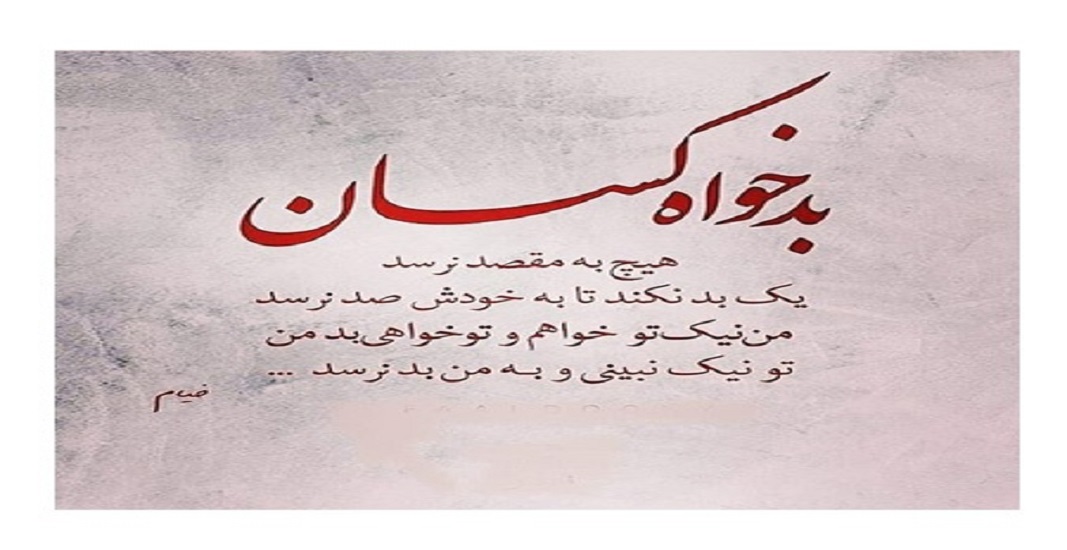 بدخواه کسان
هیچ به مقصد نرسد
یک بد نکند تا به خودش صد نرسد
من نیک تو خواهم و تو خواهی بد من
تو نیک نبینی و به من بد نرسد ...
خیام